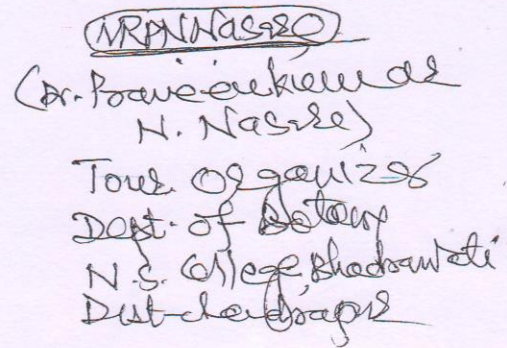 NRPNNasre
(Dr. Praveenkumar
N. Nasre)
Tour Organizer
Dept. of Botany
N.S. College, Bhadrawati
Dist-chandrapur